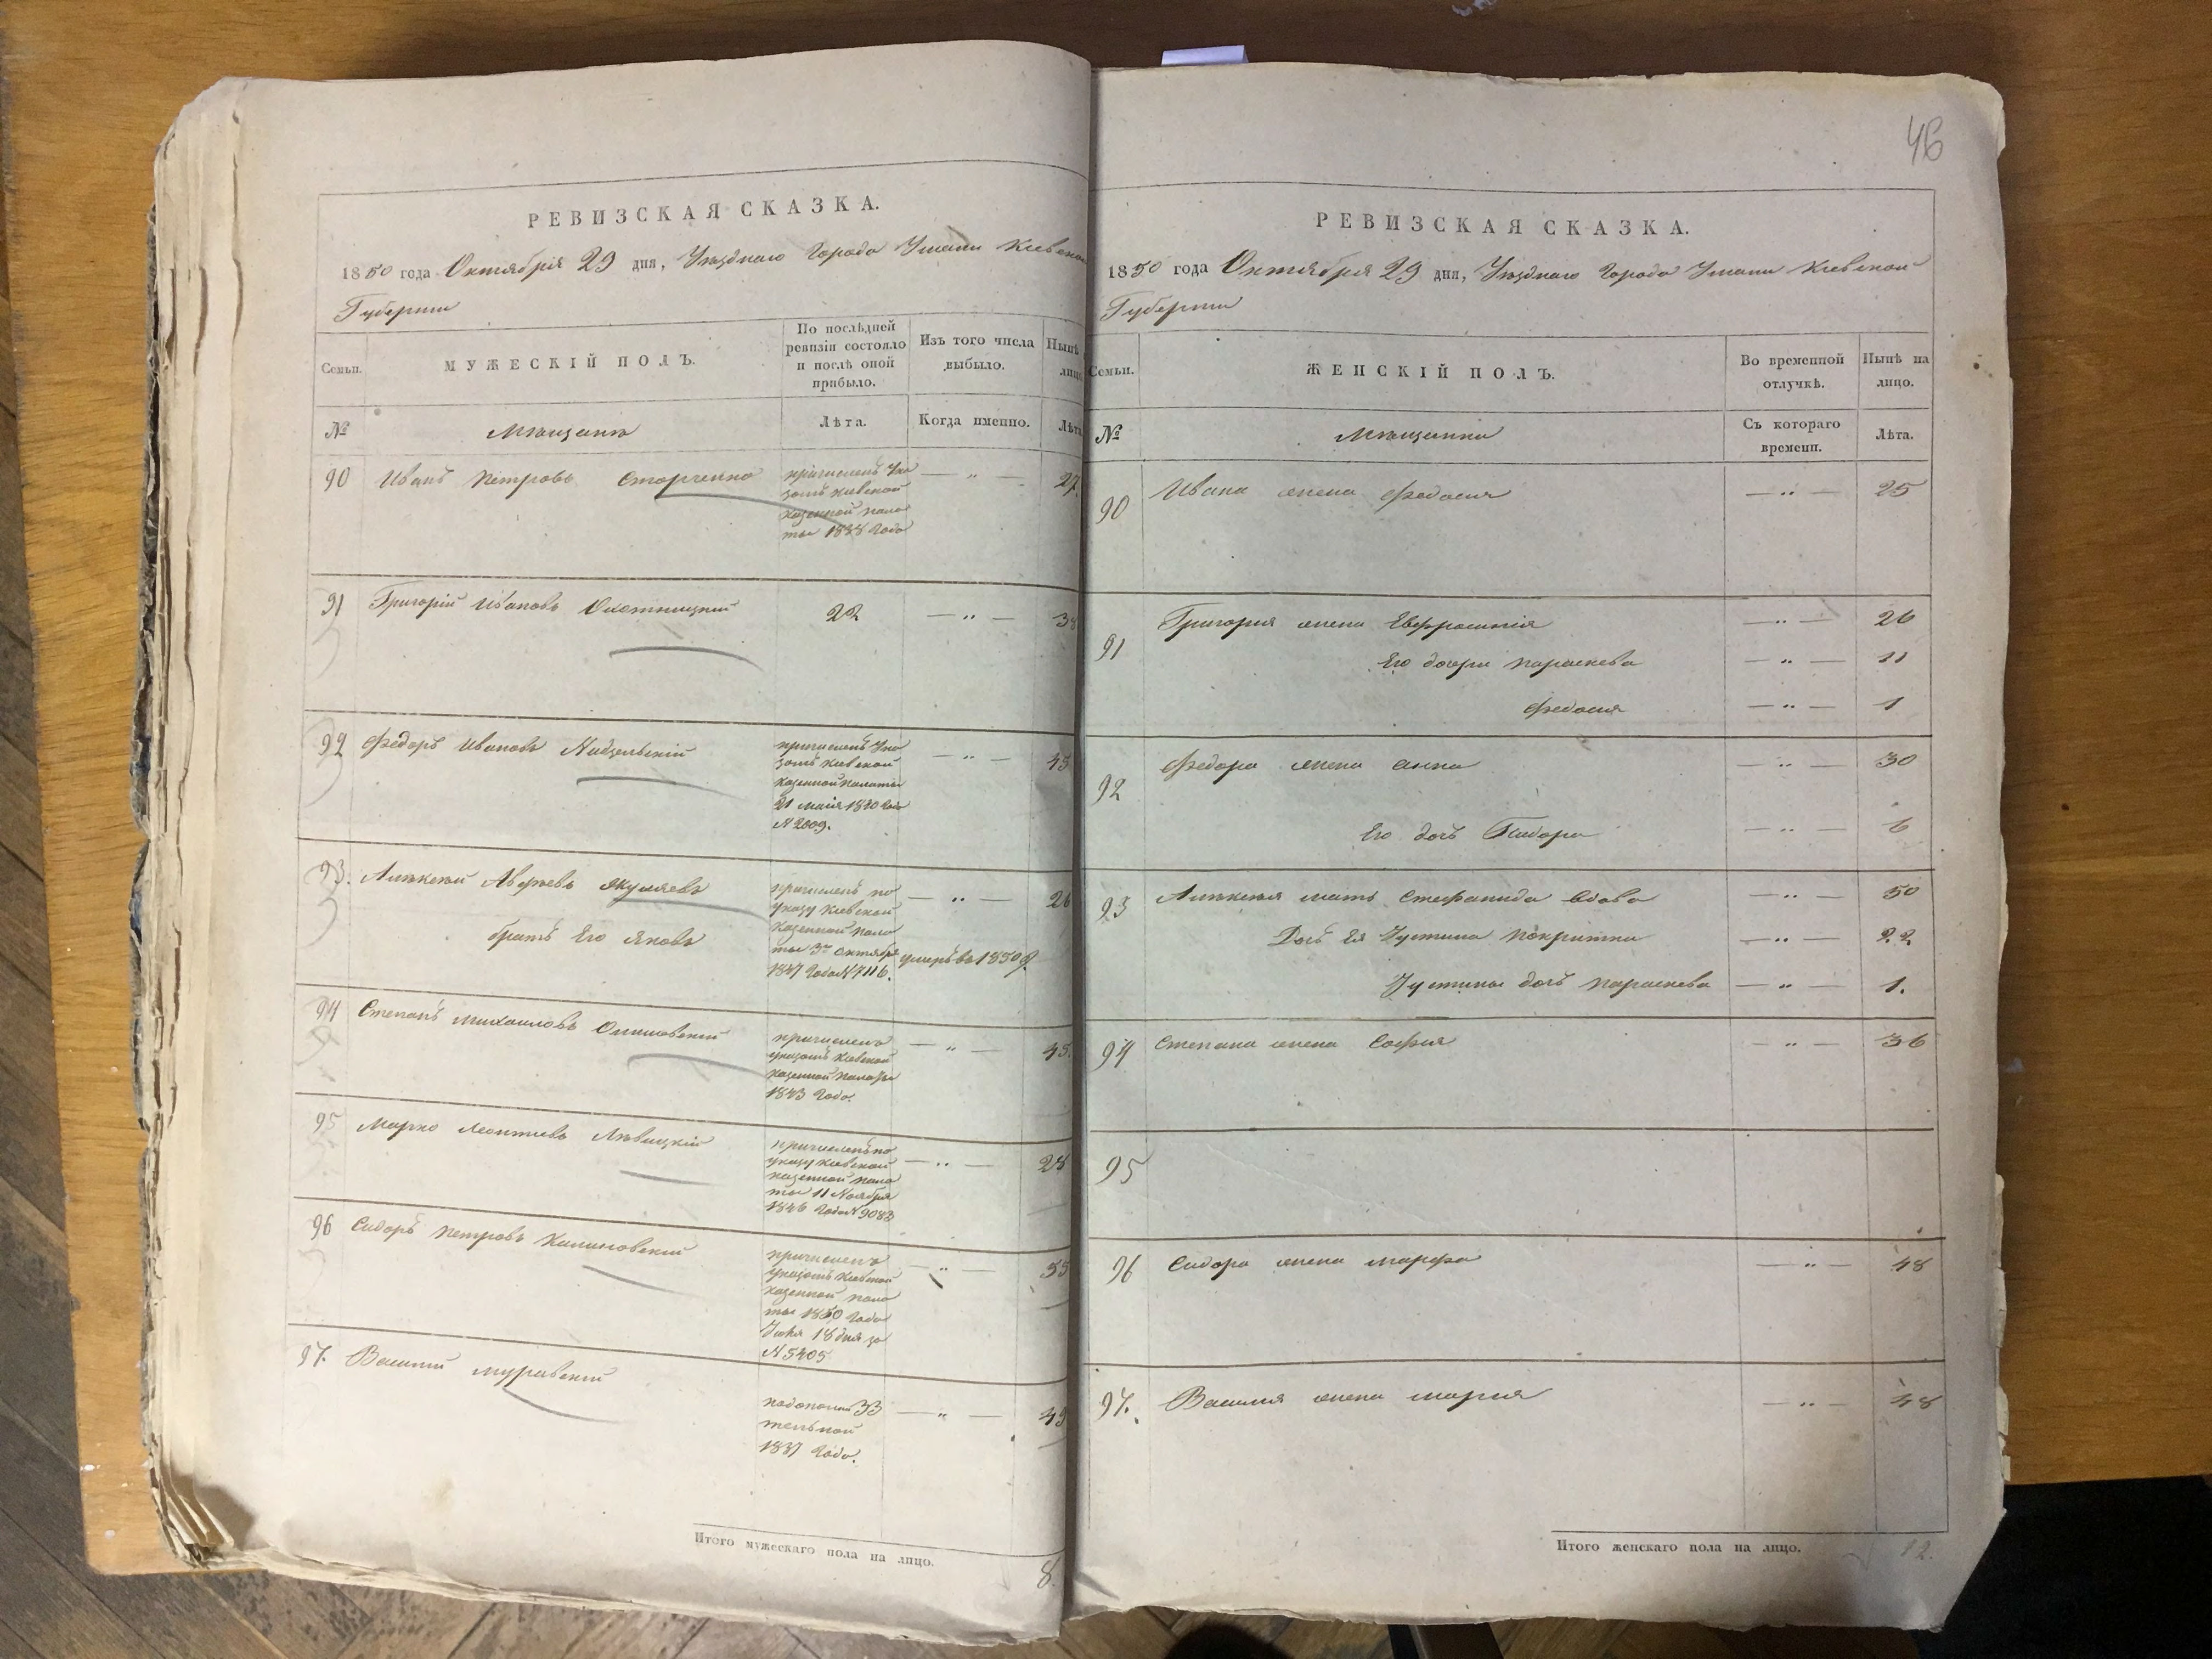 РЕВИЗСКАЯ СКАЗКА.
1850 года Октябрія 29 дня, Уезднаго Города Умани Киевской
Губерніи
Семьи.
МУЖЕСКІЙ ПОЛЪ.
По послѣдней
ревизіи состояло
и послѣ оной
прибыло.
Изъ того числа
выбыло.
Нынѣ
лицо
№
Мѣщане
Лѣта.
Когда именно.
Лѣта
90 Иванъ Петровъ Сторченко причисленъ Ука — „ — 27.
зомъ киевской
казенной пала
ты 1838 Года
91 Григорій Ивановъ Охотницкий 22 — „ — 38
92 Федоръ Ивановъ причисленъ Ука — „ — 45
зомъ киевской
казенной палаты
21 маія 18 0 Года
№ 2009.
93. Алѣксѣй Аверьевъ причисленъ по — „ — 26
указу киевской
казенной пала
братъ Его Яковъ ты 3го октября умеръ въ 1850 г.
1847 Года № 7116.
94 Степанъ Михаиловъ причисленъ — „ — 45.
указомъ Киевской
казенной Палаты
1843 Года.
95 Марко Леонтиевъ Лѣвицкій причисленъ по — „ — 28
указу киевской
казенной пала
ты 11 Ноября
1846 Года № 9083
96 Сидоръ Петровъ Калиновский причисленъ — „ — 55
указомъ Киевской
казенной пала
ты 1850 Года
18 дня за
№ 5405
97. Василий Муравский 33 — „ — 49
1837 Года.
Итого мужескаго пола на лицо. 8.
46
РЕВИЗСКАЯ СКАЗКА.
1850 года Октября 29 дня, Уезднаго Города Умани Киевской
Губерніи
Семьи.
ЖЕНСКІЙ ПОЛЪ.
Во временной
отлучкѣ.
Нынѣ на
лицо.
№
Мѣщанки
Съ котораго
времени.
Лѣта.
90 Ивана жена Федосия — „ — 25
91 Григория жена Евфросинія — „ — 26
Его дочери Параскева — „ — 11
Федосия — „ — 1
92 Федора жена Анна — „ — 30
Его дочъ — „ — 6
93 Алѣксѣя мать Стефанида вдова — „ — 50
Дочъ Ея Іустина Покритка — „ — 22.
Іустины дочъ Параскева — „ — 1.
94 Степана жена София — „ — 36
95
96 Сидора жена Марфа — „ — 48
97. Василия жена Мария — „ — 48
Итого женскаго пола на лицо. 12.